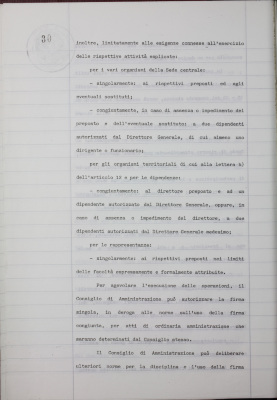 30
inoltre, limitatamente alle esigenze connesse all'esercizio
delle rispettive attività esplicate:
per i vari organismi della Sede centrale:
- singolarmente: ai rispettivi preposti ed agli
eventuali sostituti;
- congiuntamente, in caso di assenza o impedimento del
preposto e dell'eventuale sostituto: a due dipendenti
autorizzati dal Direttore Generale, di cui almeno uno
dirigente o funzionario;
per gli organismi territoriali di cui alla lettera b)
dell'articolo 12 e per le dipendenze:
- congiuntamente: al direttore preposto e ad un
dipendente autorizzato dal Direttore Generale, oppure, in
caso di assenza o impedimento del direttore, a due
dipendenti autorizzati dal Direttore Generale medesimo;
per le rappresentanze:
- singolarmente: ai rispettivi preposti nei limiti
delle facoltà espressamente e formalmente attribuite.
Per agevolare l'esecuzione delle operazioni, il
Consiglio di Amministrazione può autorizzare la firma
singola, in deroga alle norme sull'uso della firma
congiunta, per atti di ordinaria amministrazione che
saranno determinati dal Consiglio stesso.
Il Consiglio di Amministrazione può deliberare
ulteriori norme per la disciplina e l'uso della firma